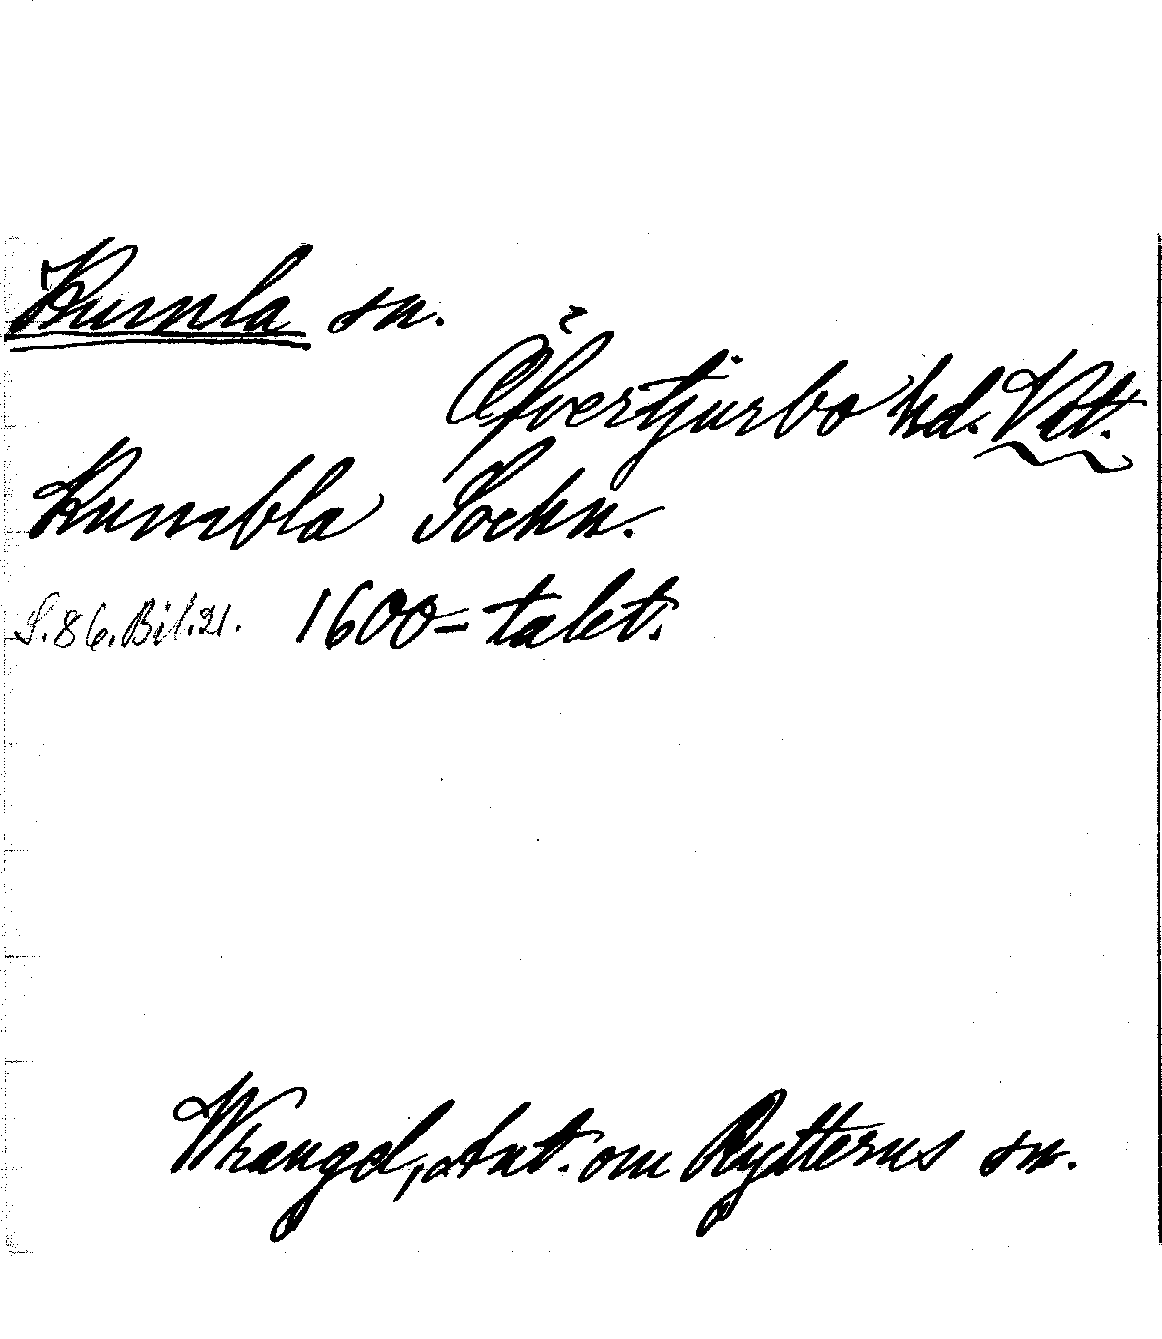 Kumla sn.
Öfvertjurbo hd. Vst.
Kumbla Sochn.
S. 86. Bil. 21. 1600-talet.
Wrangel, Ant. om Rytterns sn.